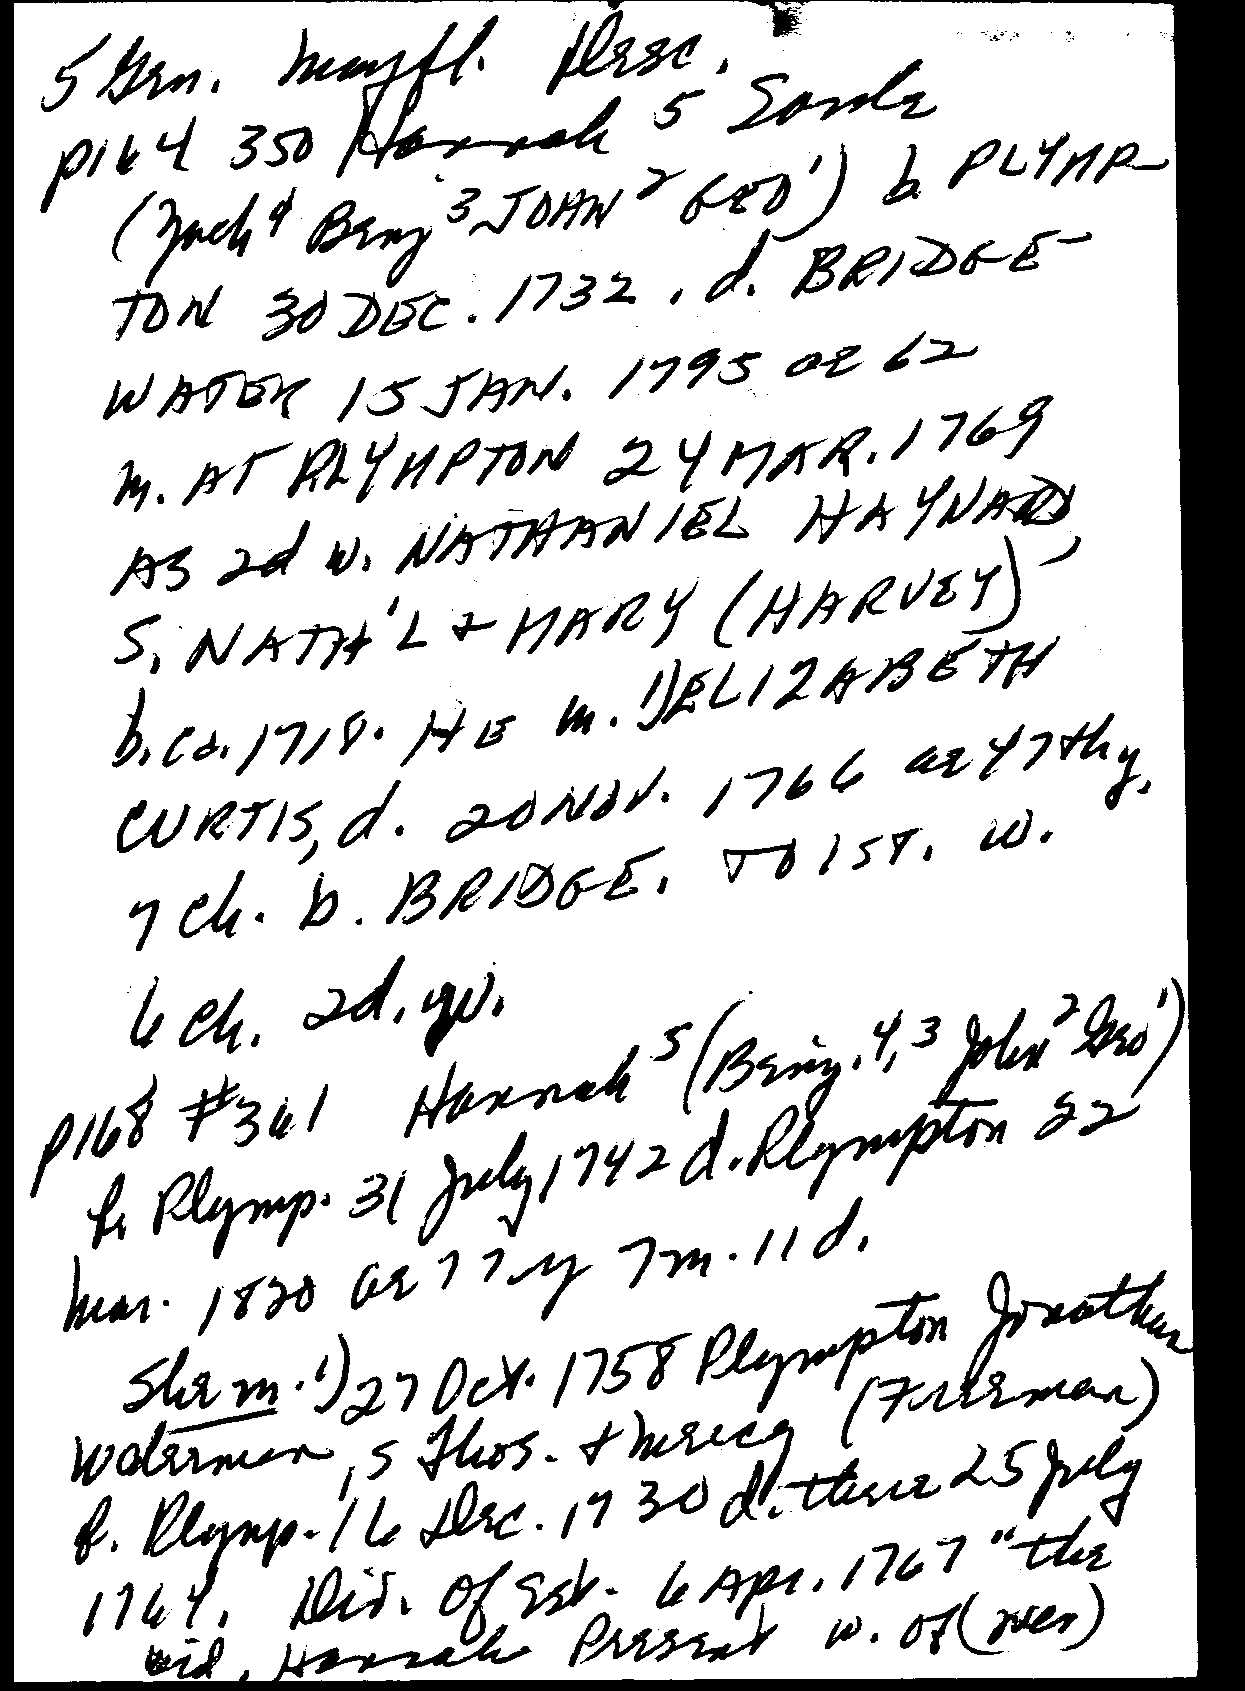 5 Gen. Mayfl. Desc.
p164 350 Hannah 5 Soule
(Zach 4 Benj 3 JOHN 2 GEO 1) b. PLYMP-
TON 30 DEC. 1732, d. BRIDGE-
WATER 15 JAN. 1795 ae 62
m. AT PLYMPTON 24 MAR. 1769
AS 2d w. NATHANIEL HAYWARD,
S. NATH'L + MARY (HARVEY)
b. ca. 1718. HE m. 1) ELIZABETH
CURTIS, d. 20 NOV. 1766 ae 47th y.
7 ch. b. BRIDGE. TO 1ST. w.
6 ch. 2d. w.
p168 #361 Hannah 5 (Benj. 4, 3 John 2 Geo 1)
b. Plymp. 31 July 1742 d. Plympton 22
Mar. 1820 ae 77 y 7 m. 11 d.
She m. 1) 27 Oct. 1758 Plympton Jonathan
Waterman, s Thos. + Mercy (Freeman)
b. Plymp. 16 Dec. 1730 d. there 25 July
1764. Div. of Est. 6 Apr. 1767 "the
wid. Hannah Present w. of (over)